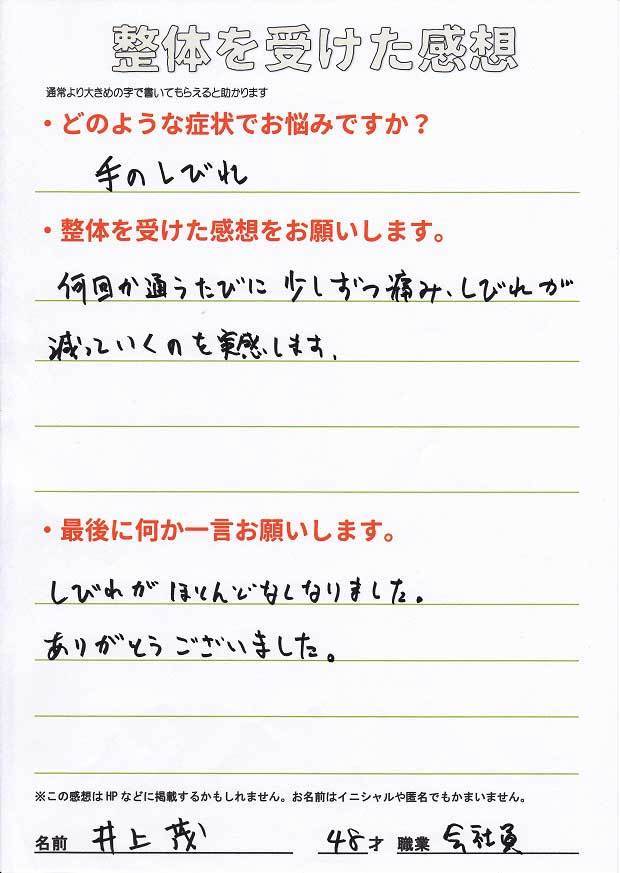 整体を受けた感想
通常より大きめの字で書いてもらえると助かります
・どのような症状でお悩みですか？
手のしびれ
・整体を受けた感想をお願いします。
何回か通うたびに少しずつ痛み、しびれが
減っていくのを実感します。
・最後に何か一言お願いします。
しびれがほとんどなくなりました。
ありがとうございました。
※この感想はHPなどに掲載するかもしれません。お名前はイニシャルや匿名でもかまいません。
名前 井上茂 48才 職業 会社員